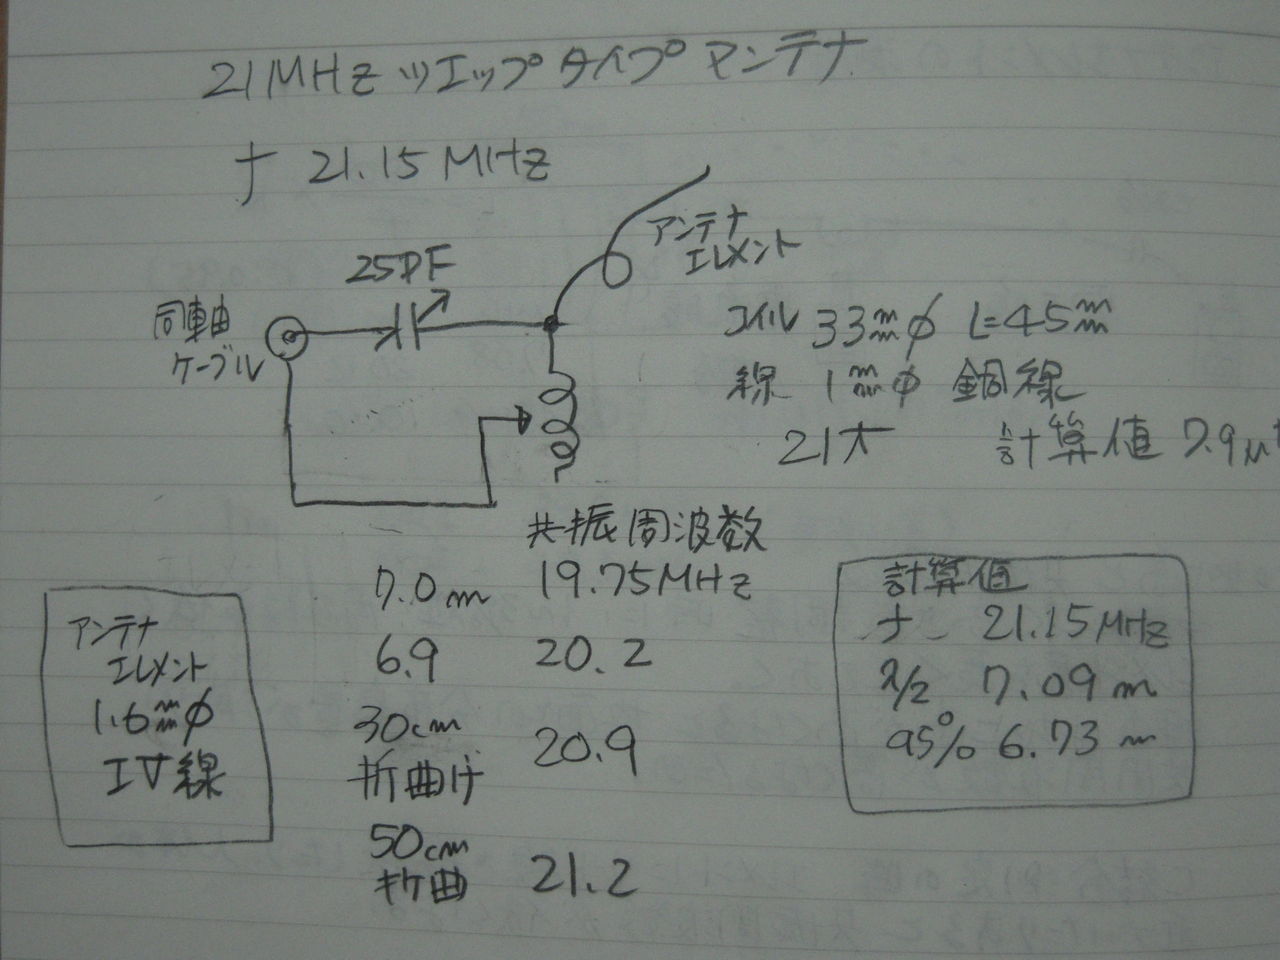 21MHz ツェップタイプアンテナ
f 21.15 MHz
アンテナ
エレメント
25PF
同軸
ケーブル
コイル 33㎜φ L=45㎜
線 1㎜φ 銅線
21T 計算値 7.9μ
共振周波数
7.0m 19.75MHz
6.9 20.2
30cm
折曲げ 20.9
50cm
折曲 21.2
アンテナ
エレメント
1.6㎜φ
IV線
計算値
f 21.15MHz
λ/2 7.09 m
95% 6.73 m